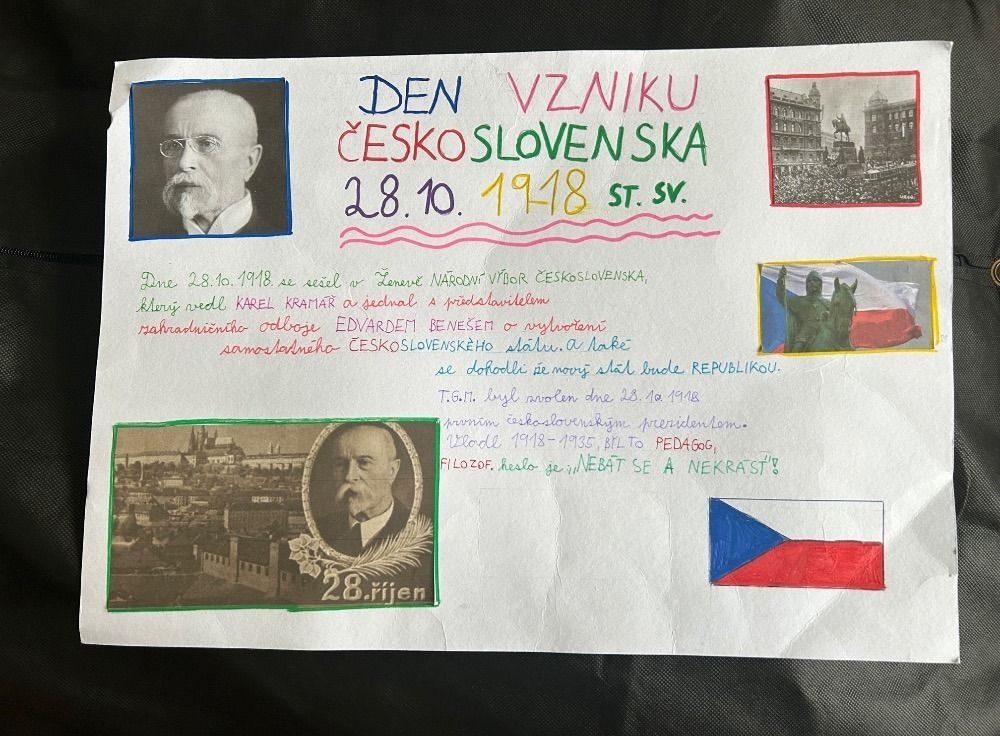 DEN VZNIKU
ČESKOSLOVENSKA
28.10. 1918 ST. SV.
Dne 28.10.1918 se sešel v Ženevě NÁRODNÍ VÝBOR ČESKOSLOVENSKA,
který vedl KAREL KRAMÁŘ a jednal s představitelem
zahradničního odboje EDVARDEM BENEŠEM o vytvoření
samostatného ČESKOSLOVENSKÉHO státu. a také
se dohodli že nový stát bude REPUBLIKOU.
T.G.M. byl zvolen dne 28.10 1918
prvním československým prezidentem.
Vládl 1918-1935, BYL TO PEDAGOG,
FILOZOF. heslo je ,,NEBÁT SE A NEKRÁST"!
28.říjen